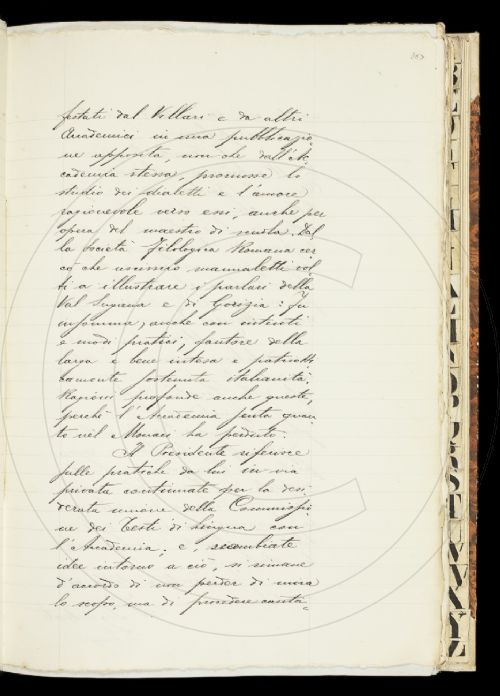 festati dal Villari e da altri
Accademici in una pubblicazio
ne apposita, non che dall'Ac
cademia stessa, promosse lo
studio dei dialetti e l'amore
ragionevole verso essi, anche per
opera del maestro di scuola. Dal
la Società Filologica Romana cer
cò che uscissero manualetti vòl
ti a illustrare i parlari della
Val Sugana e di Gorizia: Fu
insomma, anche con intenti
e modi pratici, fautore della
larga e bene intesa e patriotti
camente sostenuta italianità.
Ragioni profonde anche queste,
perché l'Accademia senta quan
to nel Monaci ha perduto.
Il Presidente riferisce
sulle pratiche da lui in via
privata continuate per la desi
derata unione della Commissio
ne dei Testi di Lingua con
l'Accademia; e, scambiate
idee intorno a ciò, si rimane
d'accordo di non perder di mira
lo scopo, ma di procedere cauta-